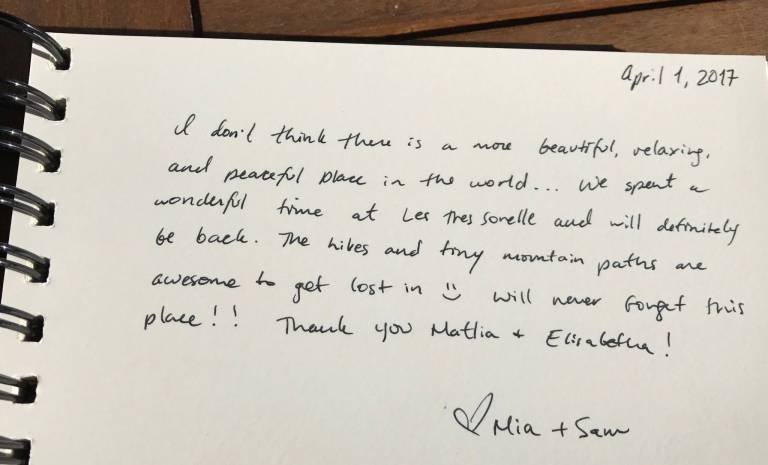 April 1, 2017
I don't think there is a more beautiful, relaxing,
and peaceful place in the world... We spent a
wonderful time at Les Tres Sorelle and will definitely
be back. The hikes and tiny mountain paths are
awesome to get lost in :) will never forget this
place!! Thank you Mattia + Elisabetha!
♡ Mia + Sam